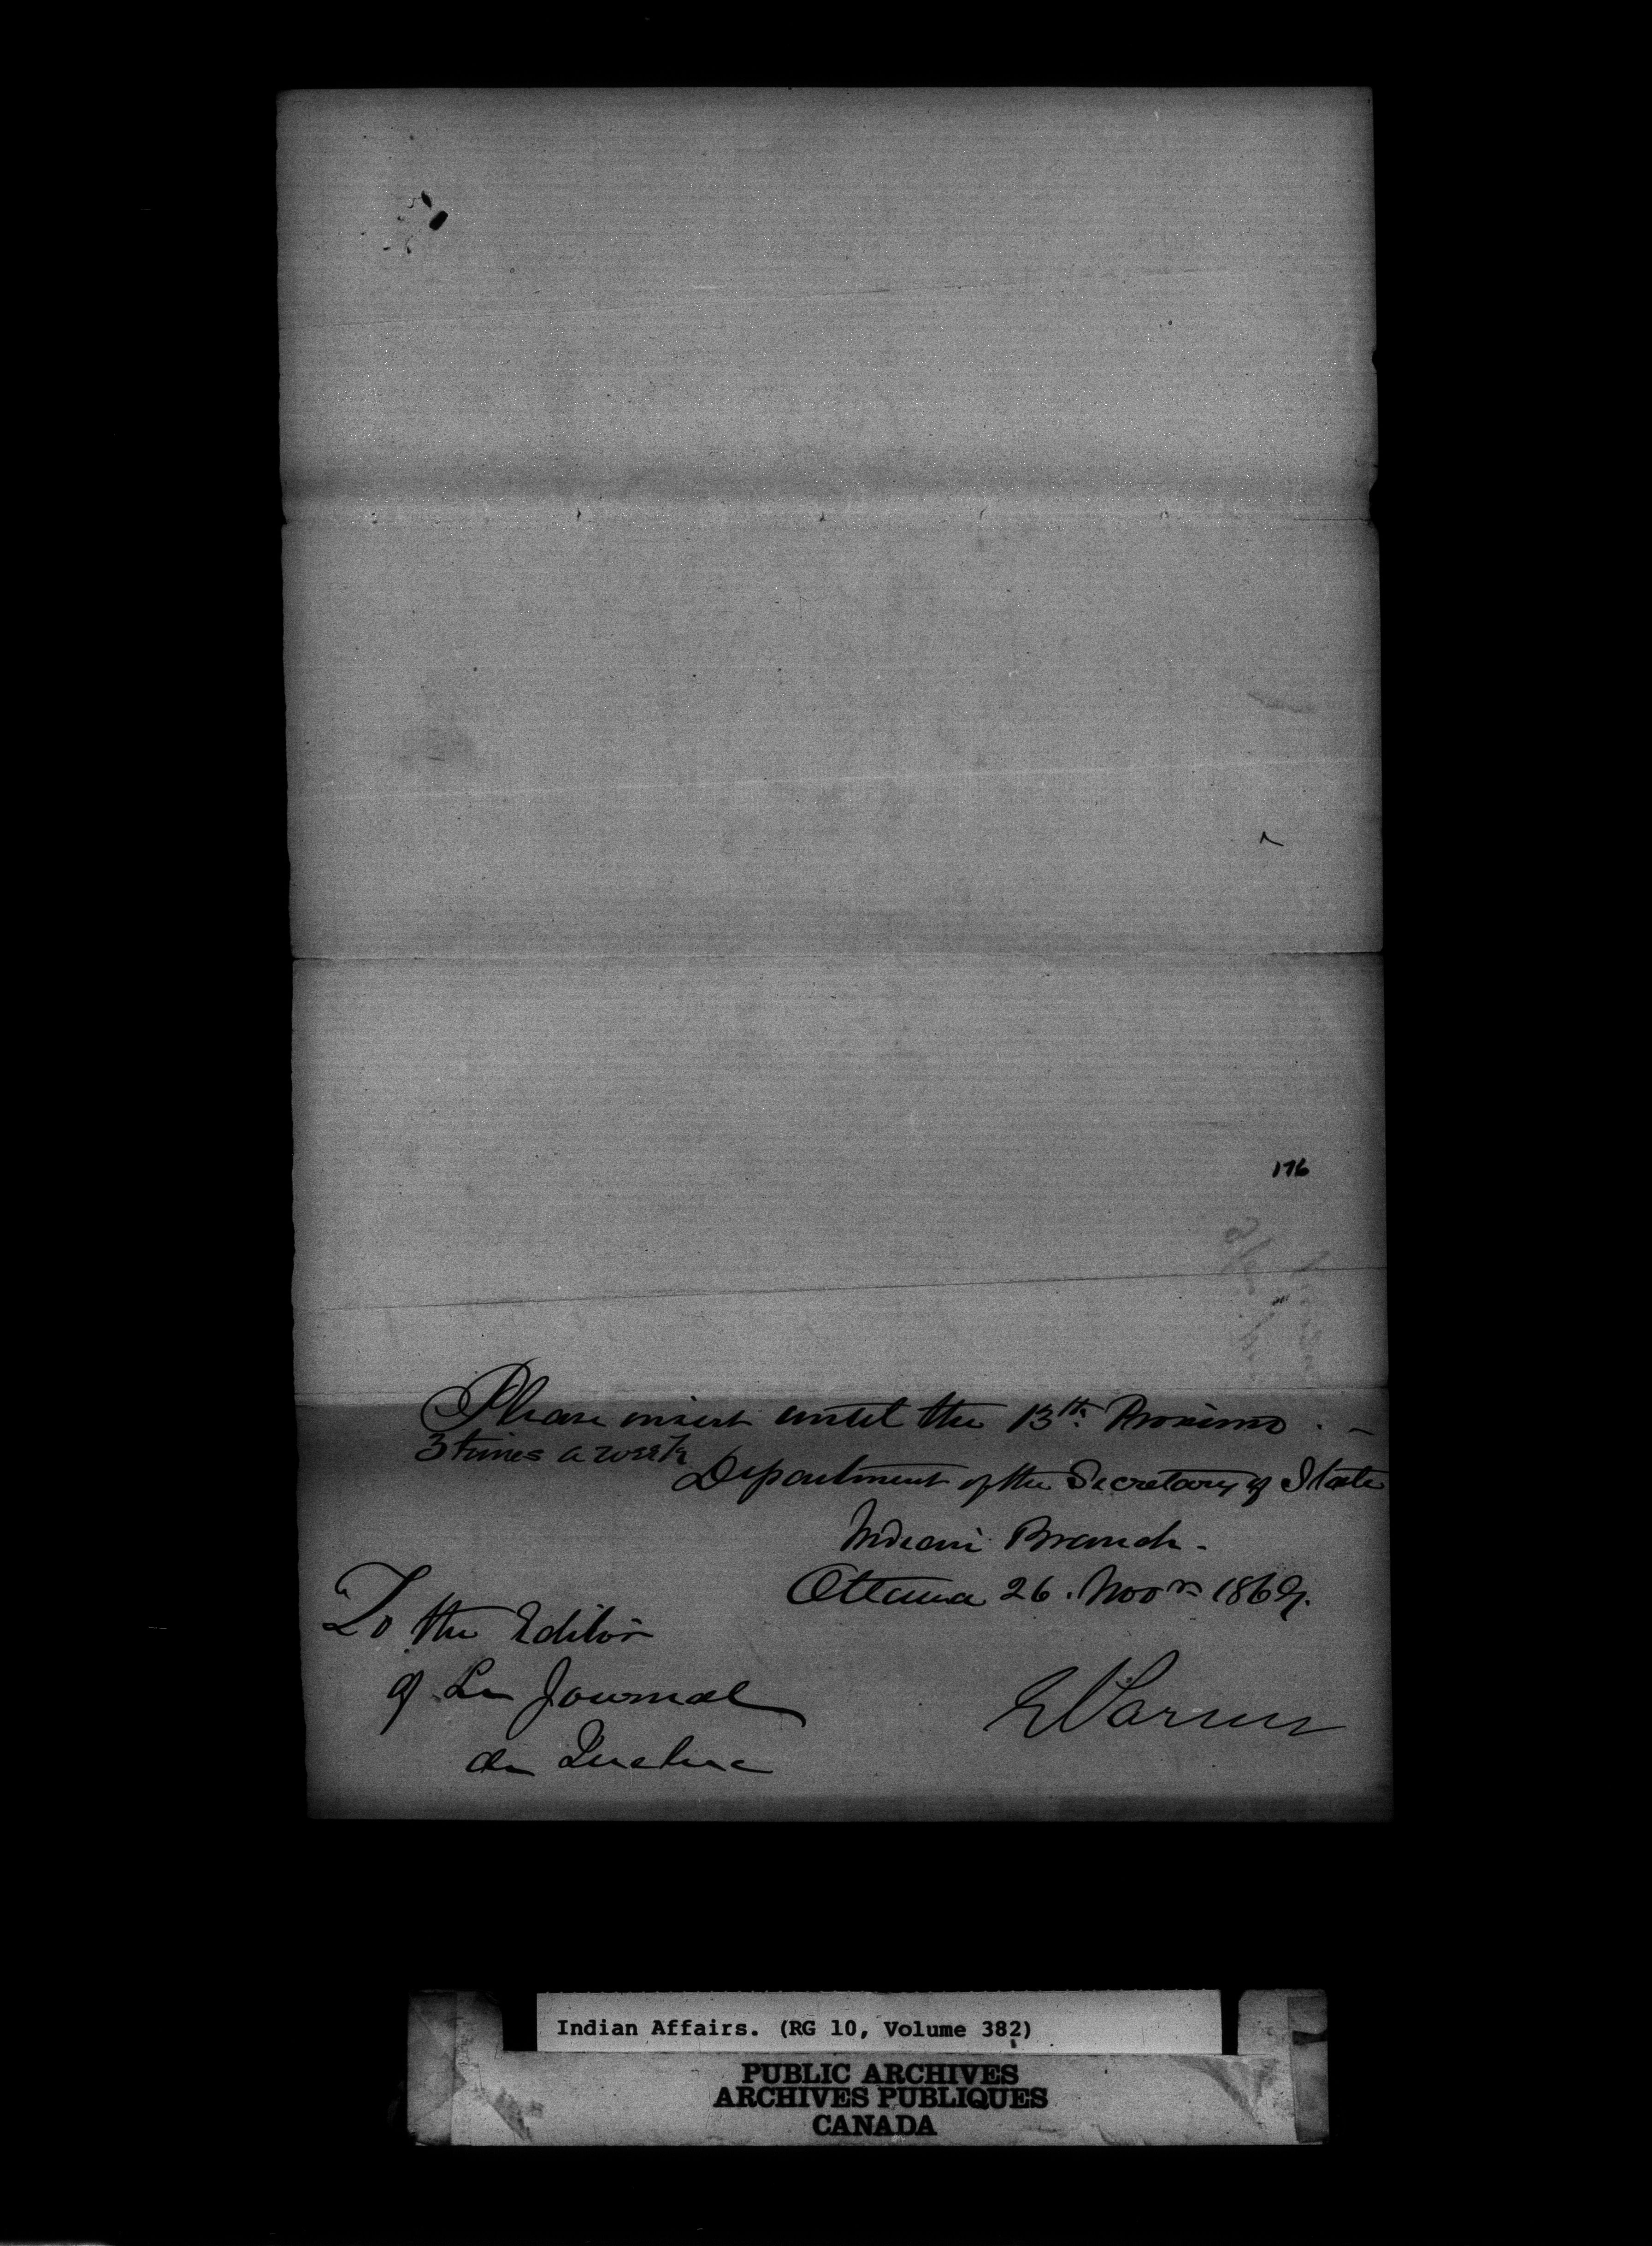 176
Please insert until the 13th. Proximo. -
3 times a week
Department of the Secretary of State
Indian Branch.
Ottawa 26. Novr 1869.
To the Editor
of Le Journal
de Quebec
Indian Affairs. (RG 10, Volume 382)
PUBLIC ARCHIVES
ARCHIVES PUBLIQUES
CANADA